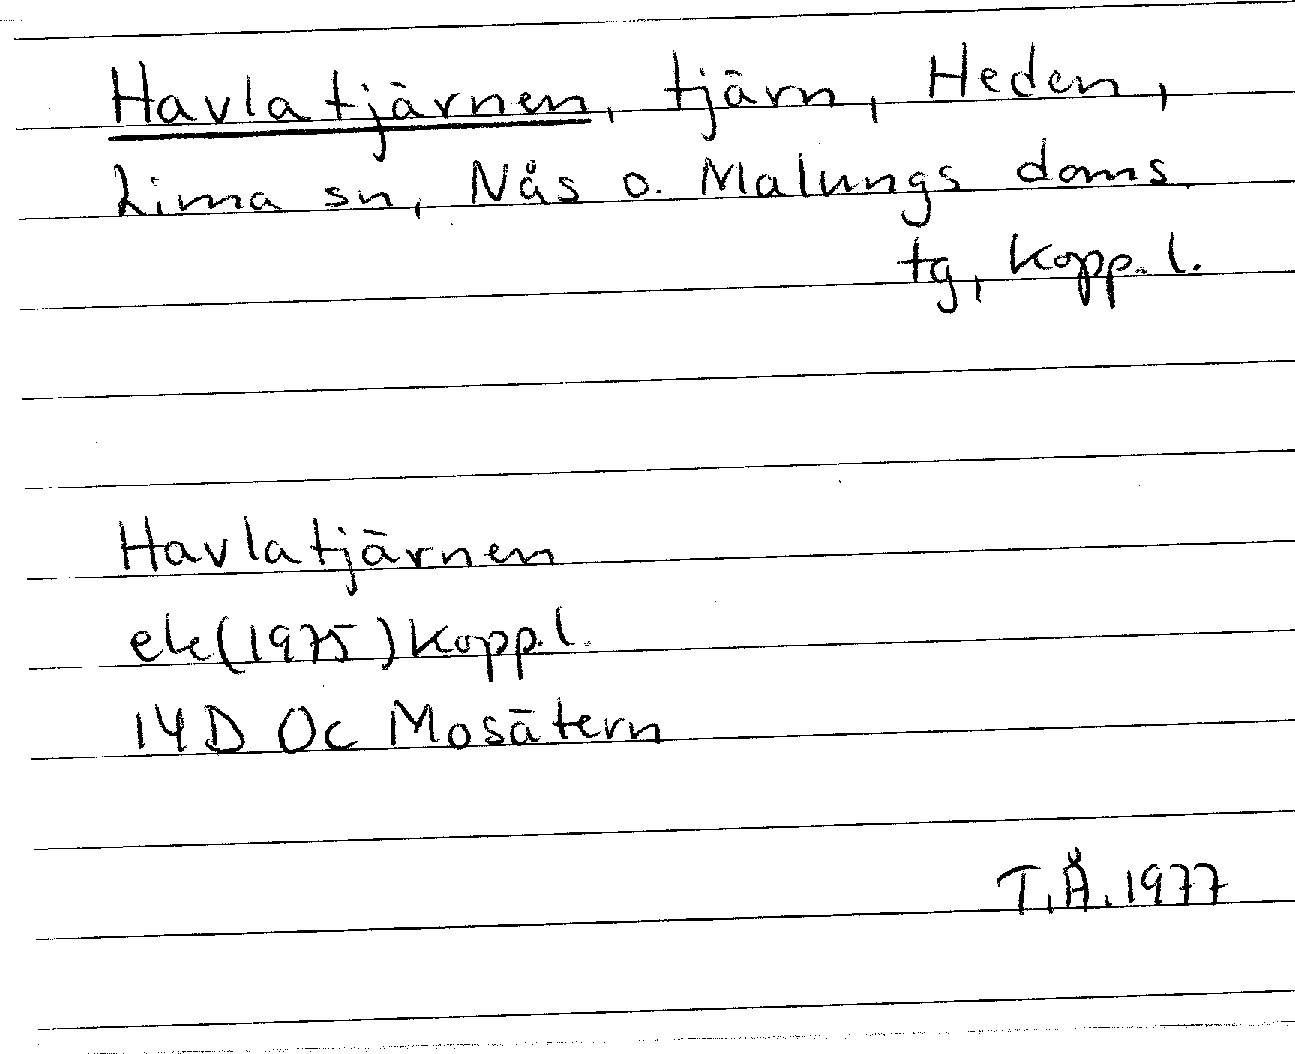 Havlatjärnen, tjärn, Heden,
Lima sn, Nås o. Malungs doms
tg, Kopp. l.
Havlatjärnen
ek(1975) Kopp.l.
14D 0c Mosätern
T.Å.1977